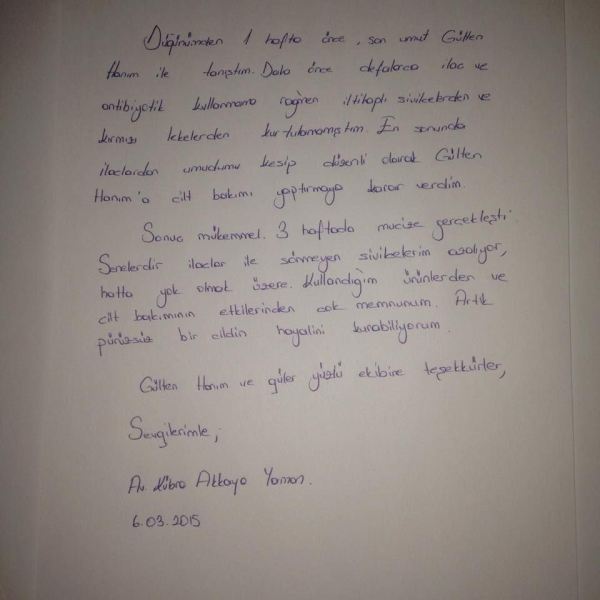 Düğünümden 1 hafta önce, son umut Gülten
Hanım ile tanıştım. Daha önce defalarca ilac ve
antibiyotik kullanmama rağmen iltihaplı sivilcelerden ve
kırmızı lekelerden kurtulamamıştım. En sonunda
ilaclardan umudumu kesip düzenli olarak Gülten
Hanım'a cilt bakımı yaptırmaya karar verdim.
Sonuc mükemmel. 3 haftada mucize gerçekleşti.
Senelerdir ilaclar ile sönmeyen sivilcelerim azalıyor,
hatta yok olmak üzere. Kullandığım ürünlerden ve
cilt bakımının etkilerinden cok memnunum. Artık
pürüzsüz bir cildin hayalini kurabiliyorum.
Gülten Hanım ve güler yüzlü ekibine teşekkürler,
Sevgilerimle;
Av. Kübra Akkaya Yaman.
6.03.2015